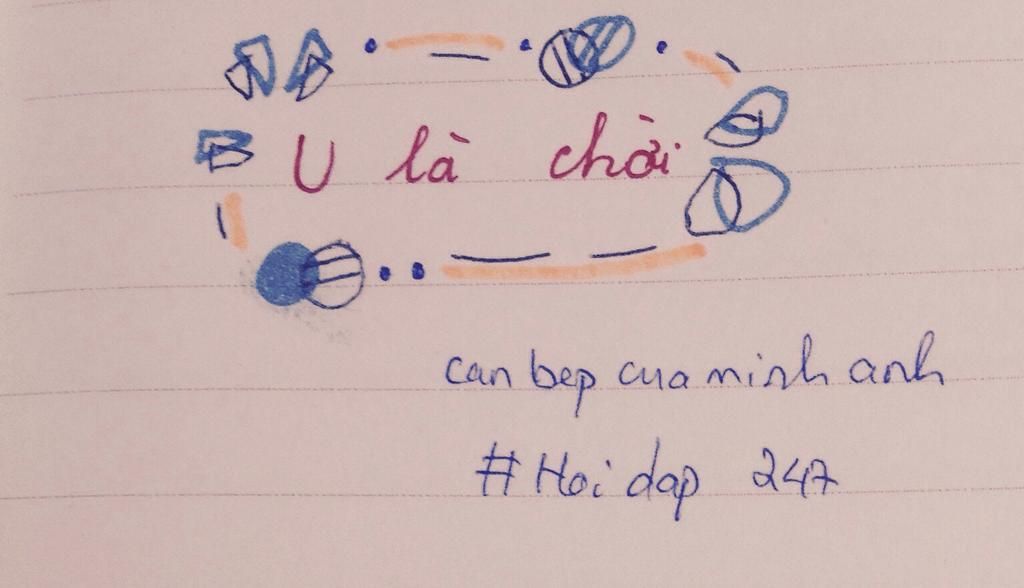 U là chời
can bep cua minh anh
# Hoi dap 247